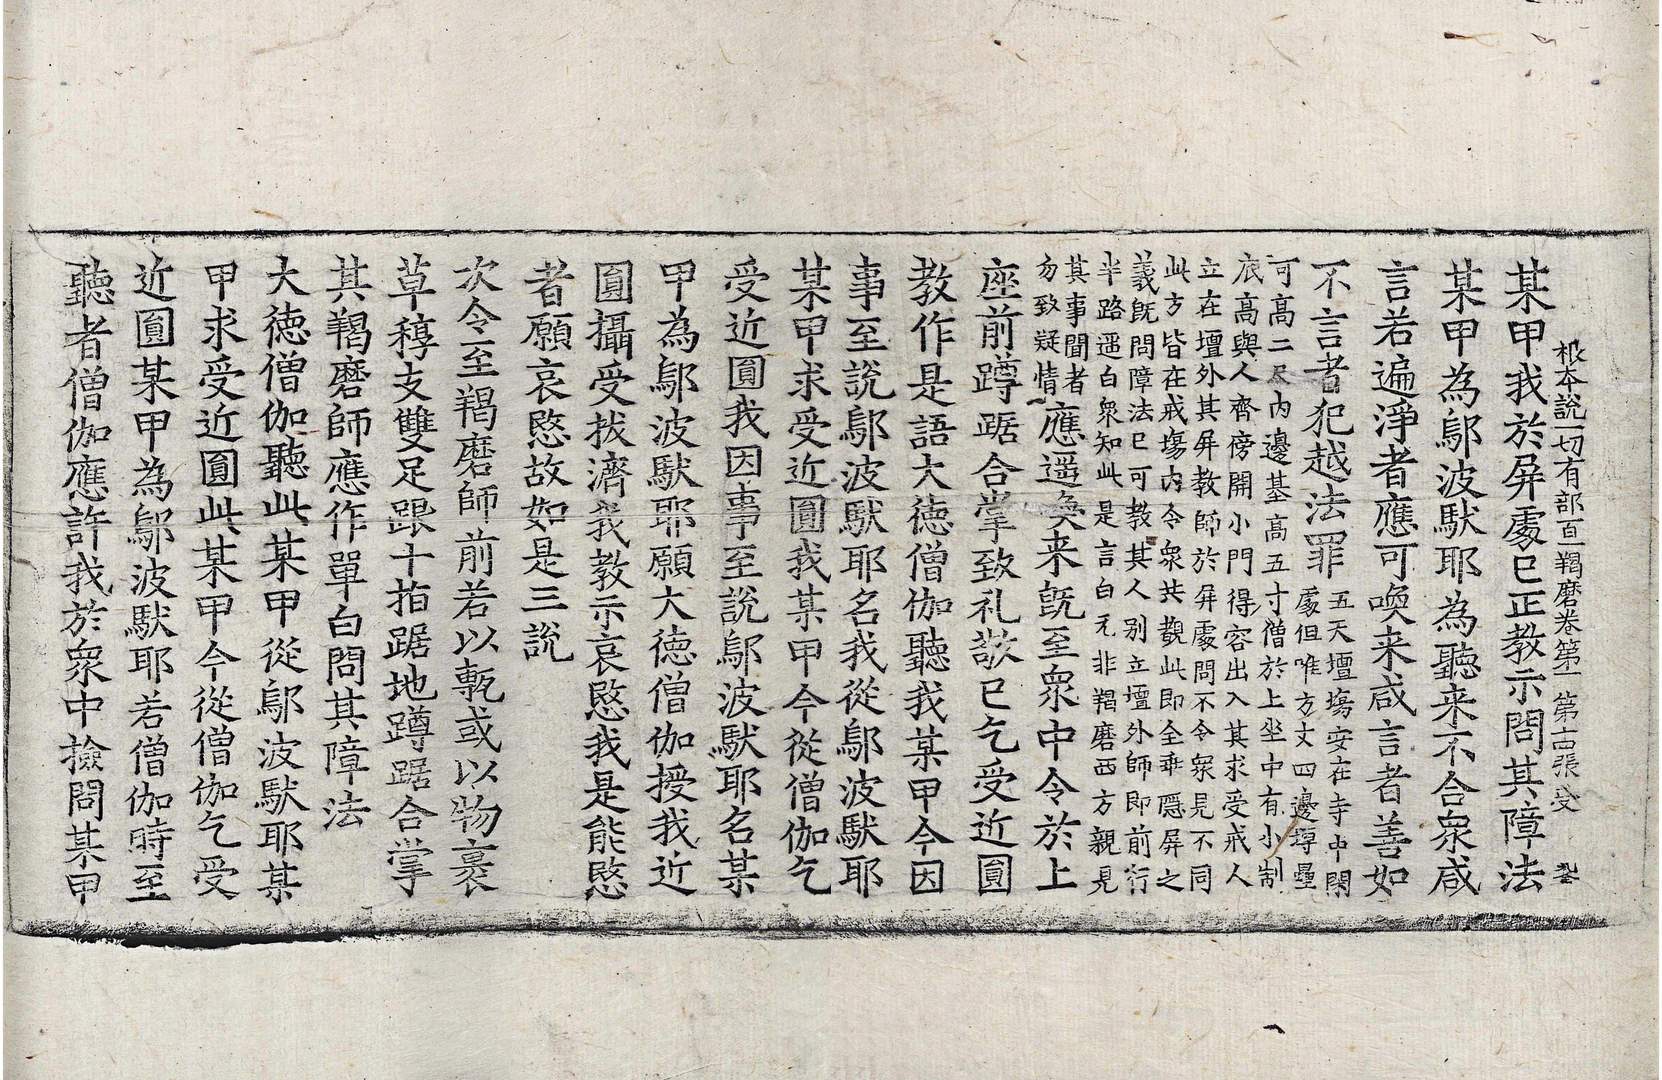 根本說一切有部百一羯磨卷第一 第古張 受
某甲我於屏處已正教示問其障法
某甲為鄔波馱耶為聽来不合衆咸
言若遍淨者應可喚来咸言者善如
不言者犯越法罪 五天壇場安在寺中閑
處但唯方丈四邊塼壘
可高二尺內邊基高五寸僧於上坐中有小制
底高與人齊傍開小門得容出入其求受戒人
立在壇外其屏教師於屏處問不令衆見不同
此方皆在戒場內令衆共觀此即全乖隱屏之
義旣問障法已可教其人別立壇外師即前行
半路遥白衆知此是言白元非羯磨西方親見
其事聞者
勿致疑情 應遥喚来旣至衆中令於上
座前蹲踞合掌致礼敬已乞受近圓
教作是語大徳僧伽聽我某甲今因
事至說鄔波馱耶名我從鄔波馱耶
某甲求受近圓我某甲今從僧伽乞
受近圓我因事至說鄔波馱耶名某
甲為鄔波馱耶願大徳僧伽授我近
圓攝受拔濟我教示哀愍我是能愍
者願哀愍故如是三說
次令至羯磨師前若以甎或以物裹
草稕支雙足跟十指踞地蹲踞合掌
其羯磨師應作單白問其障法
大徳僧伽聽此某甲從鄔波馱耶某
甲求受近圓此某甲今從僧伽乞受
近圓某甲為鄔波馱耶若僧伽時至
聽者僧伽應許我於衆中撿問某甲